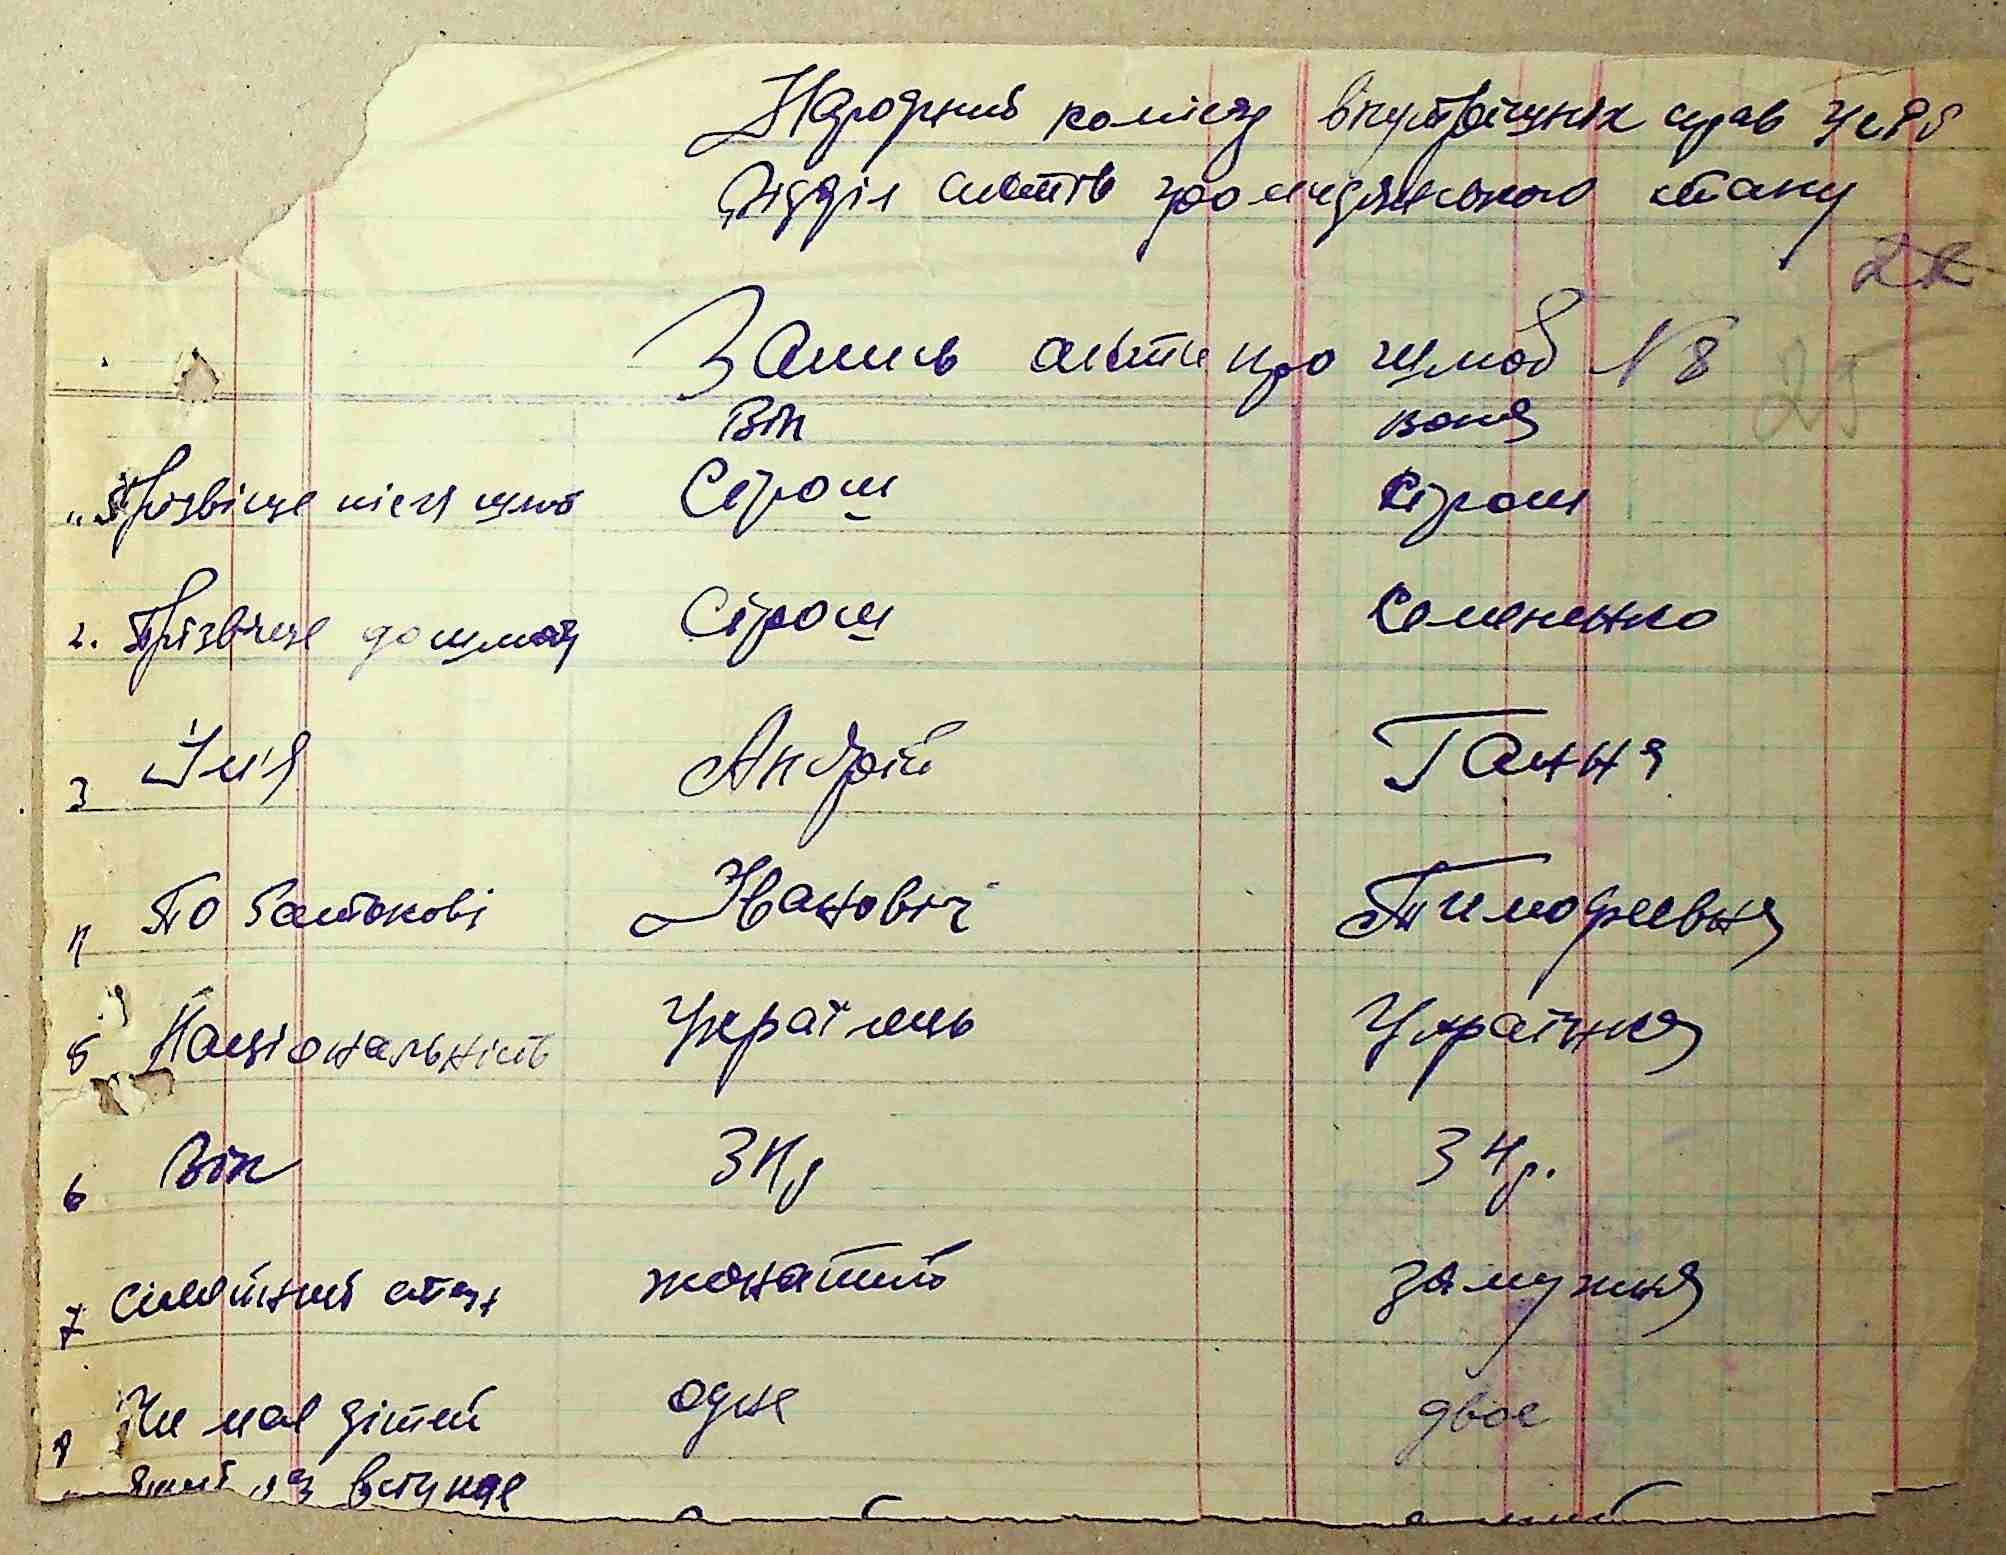 Народний комісар внутрішніх справ УСРР
Відділ актів громадянського стану
Запис акти про шлюб N 8
25
Він вона
Прізвіще після шлюб Сірош Сірош
2. Прізвіще до шлюбу Сірош Семененко
3 Ім'я Андрій Ганна
4 По батькові Іванович Тимофеевна
5 Національність Українець Українка
6 Вік 34р 34р.
7 Сімейний стан жонатий замужня
8 Чи має дітей одне двоє
який раз вступає